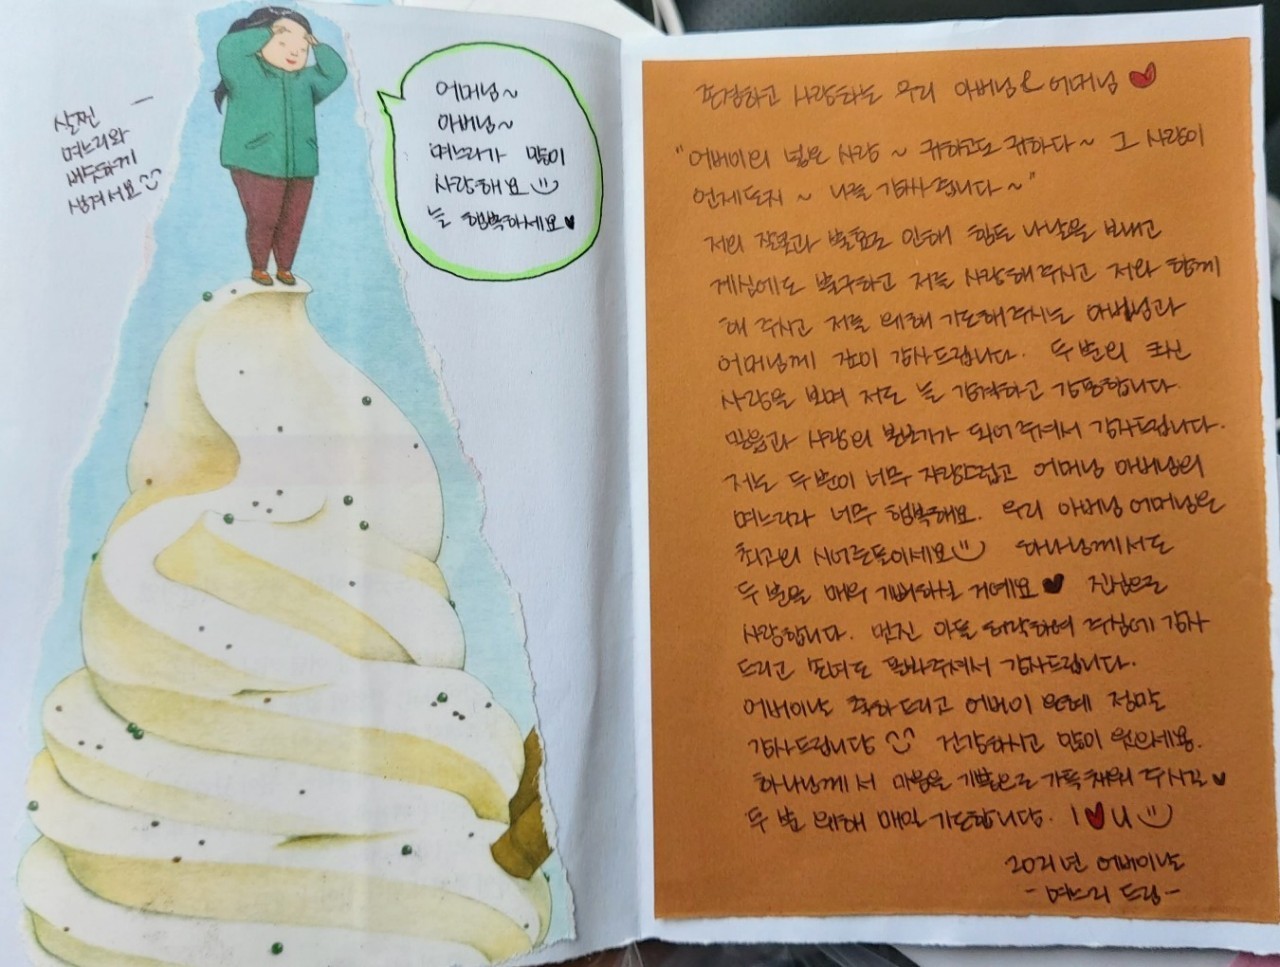 살찐
며느리와
비슷하게
생겨서요
어머님~
아버님~
며느리가 많이
사랑해요
늘 행복하세요♥
존경하고 사랑하는 우리 아버님& 어머님 ♥
"어버이의 넓은 사랑 ~ 귀하고도 귀하다~ 그 사랑이
언제든지 ~ 나를 감사 합니다~"
저의 잘못과 불효로 인해 힘든 나날을 보내고
계심에도 불구하고 저를 사랑해 주시고 저와 함께
해 주시고 저를 위해 기도해주시는 아버님과
어머님께 깊이 감사드립니다. 두 분의 크신
사랑을 보며 저도 늘 감격하고 감동합니다.
믿음과 사랑의 본보기가 되어 주셔서 감사드립니다.
저는 두 분이 너무 자랑스럽고 어머님 아버님의
며느리라 너무 행복해요. 우리 아버님 어머님은
최고의 시어른들이세요 하나님께서도
두 분을 매우 기뻐하실 거예요♥ 진심으로
사랑합니다. 멋진 아들 허락하여 주심에 감사
드리고 돌봐주셔서 감사드립니다.
어버이날 축하드리고 어버이 은혜 정말
감사드립니당 건강하시고 많이 웃으세용.
하나님께서 마음을 기쁨으로 가득 채워 주시길♥
두 분 위해 매일 기도합니당. I ♥ U
2021년 어버이날
-며느리 드림-